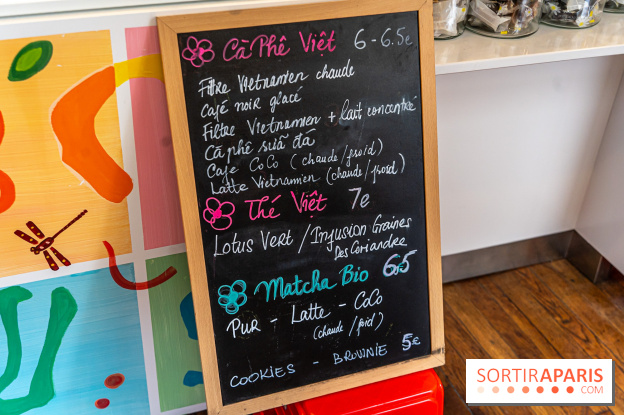 Cà Phê Việt 6 - 6.5e
Filtre Vietnamien chaude
Café noir glacé
Filtre Vietnamien + lait concentré
Cà phê sữa đá
Cafe CoCo (chaude/froid)
Latte Vietnamien (chaude/froid)
Thé Việt 7e
Lotus Vert / Infusion Graines
Des Coriandre
Matcha Bio 6,5
Pur - Latte - CoCo
(chaude/froid)
Cookies - Brownie 5€
SORTIRAPARIS
.COM